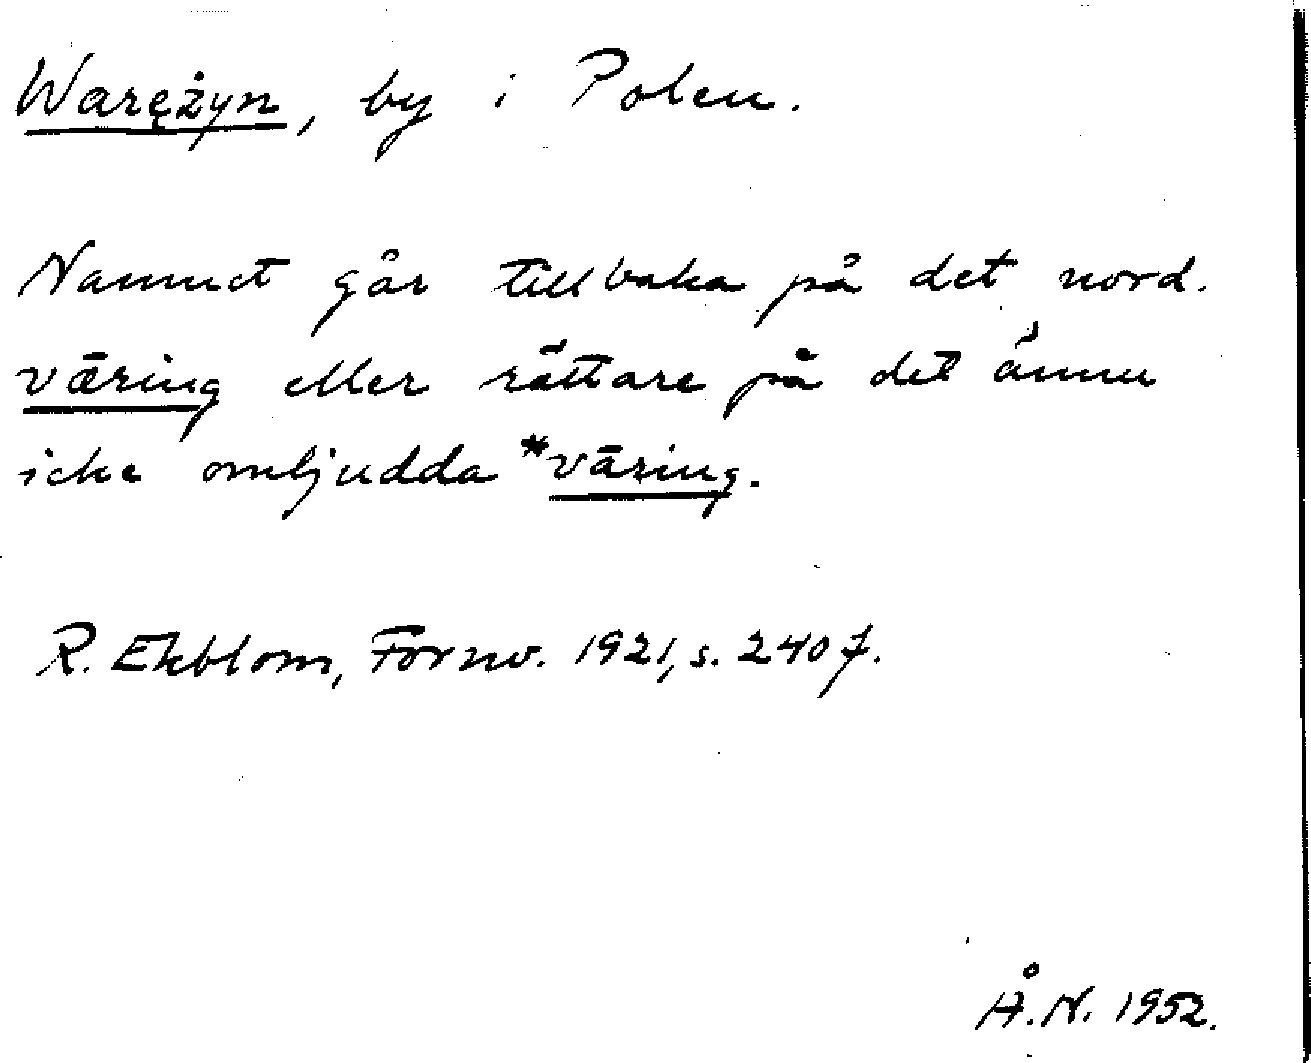 Waręžyn, by i Polen.
Namnet går tillbaka på det nord.
vǣring eller rättare på det ännu
icke omljudda *vāring.
R. Ekblom, Fornv. 1921, s. 240 f.
Å.N. 1952.